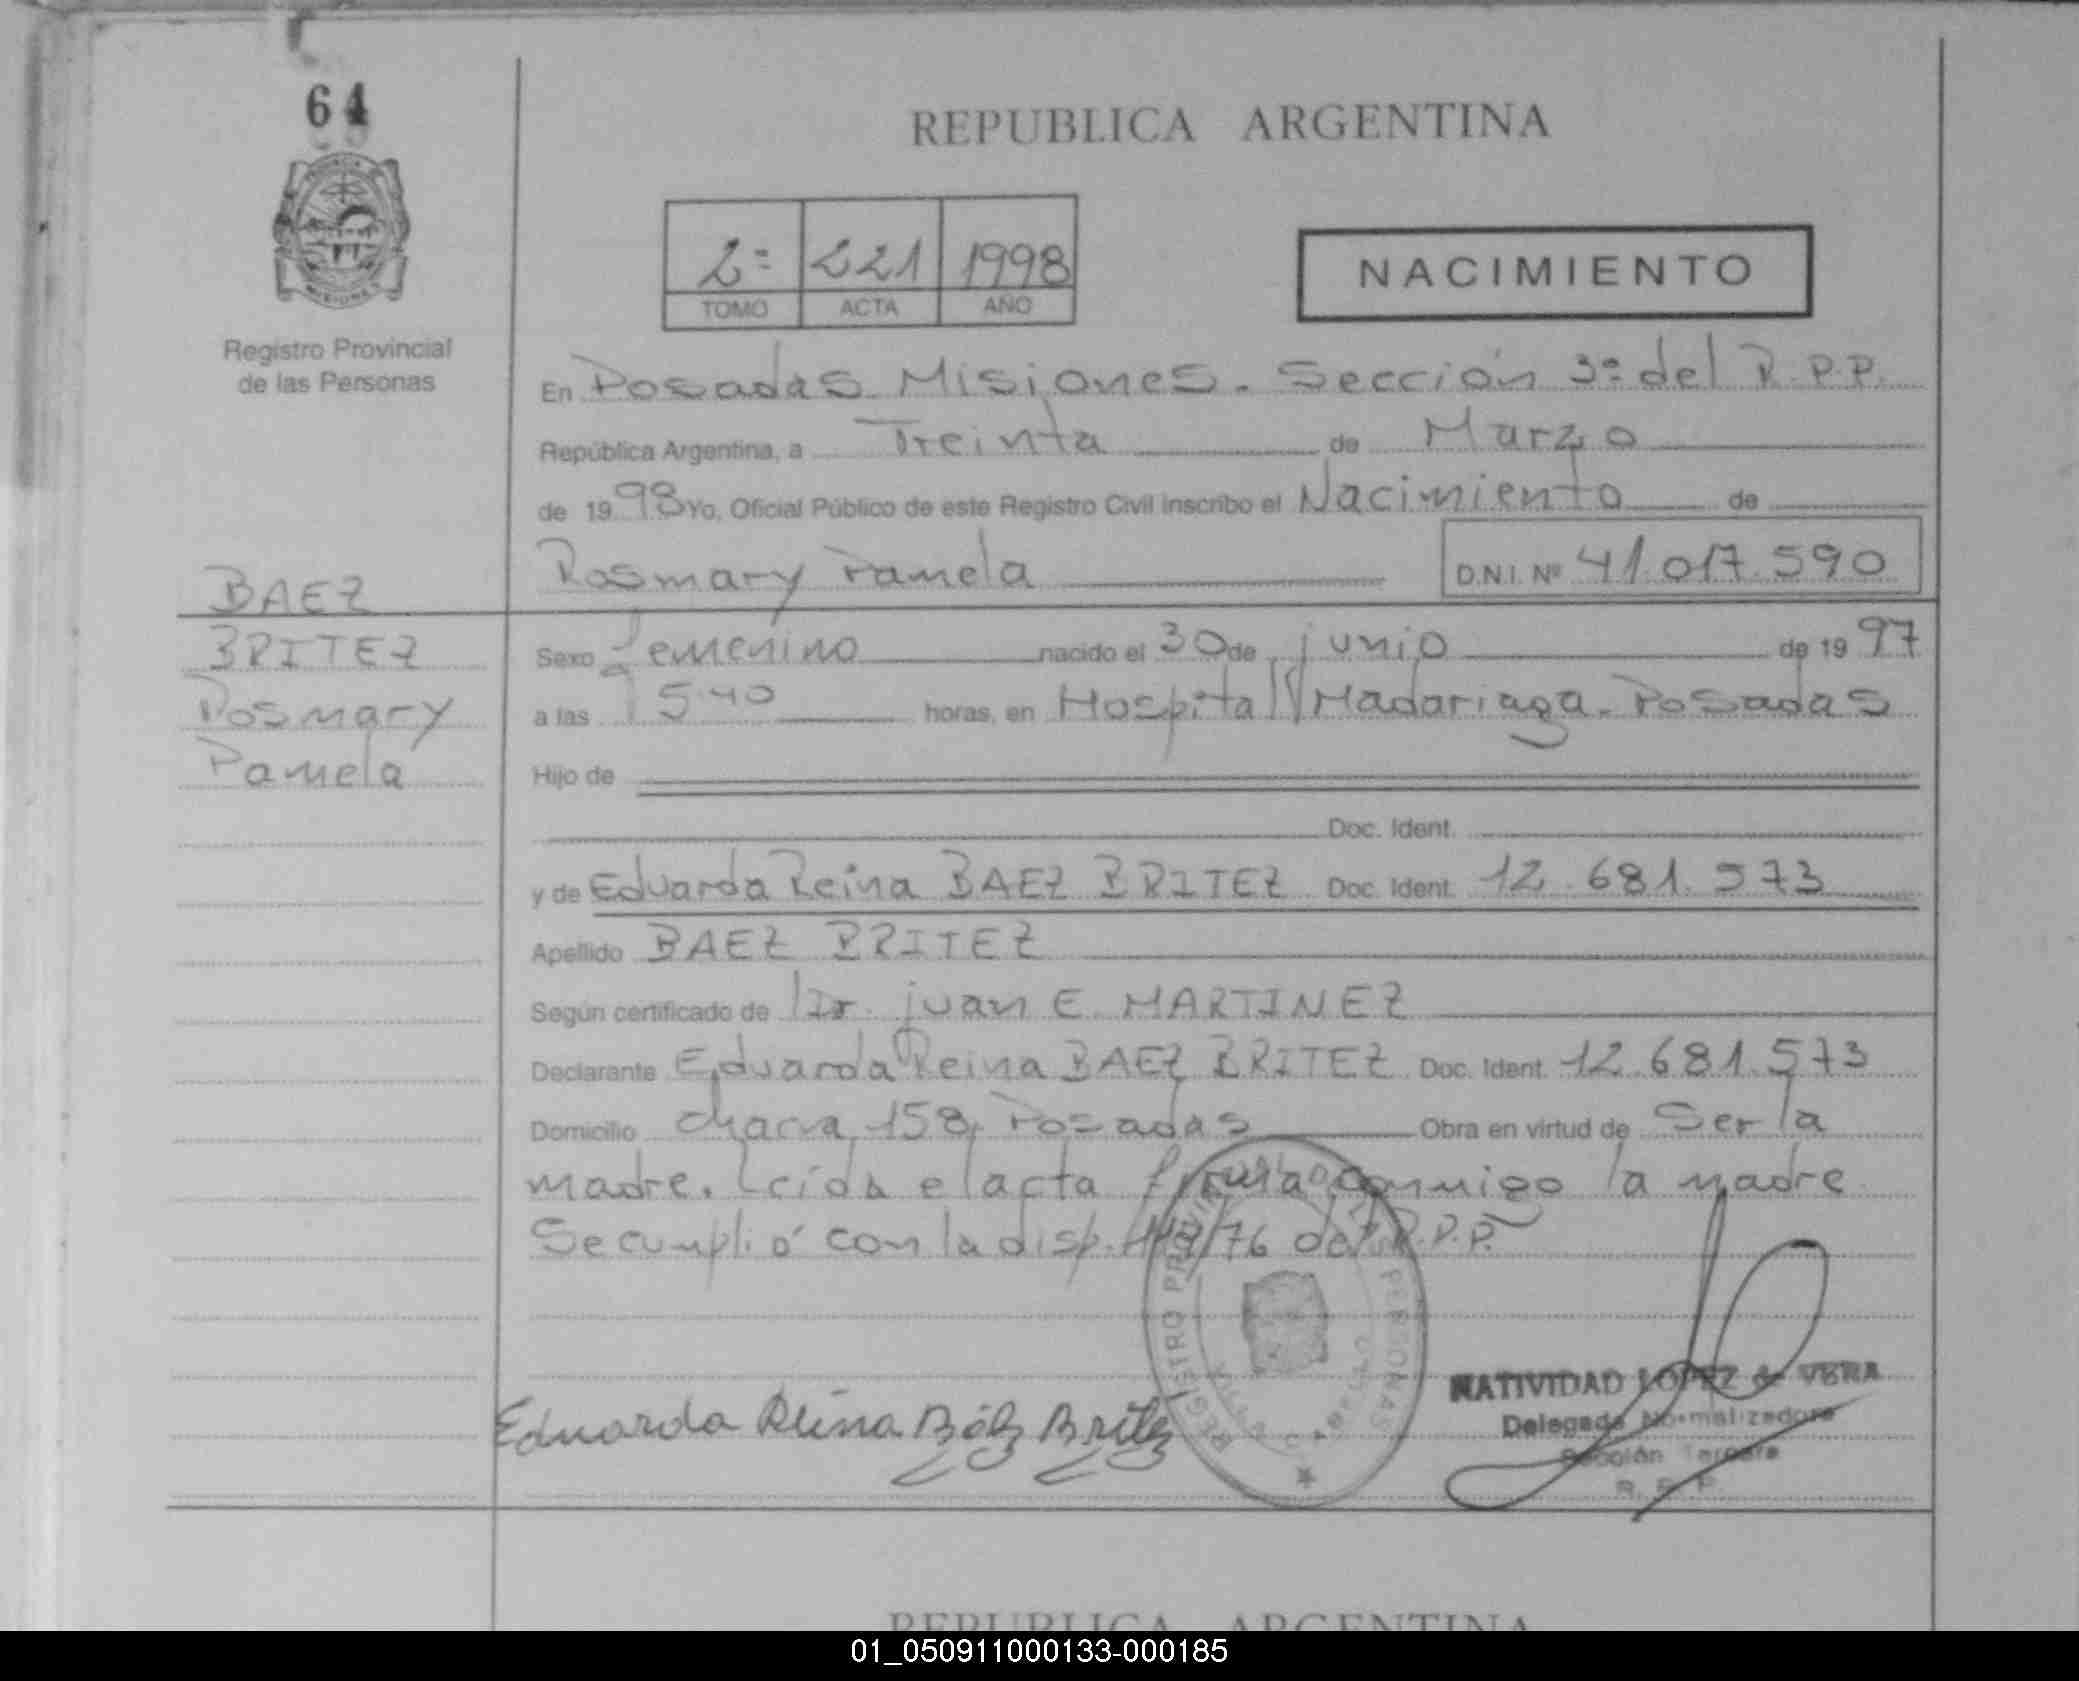 64
REPUBLICA ARGENTINA
2= 221 1998
TOMO ACTA AÑO
NACIMIENTO
Registro Provincial
de las Personas
En Posadas Misiones. Sección 3= del R.P.P.
República Argentina, a Treinta de Marzo
de 1998 Yo, Oficial Público de este Registro Civil inscribo el Nacimiento de
Rosmary Pamela D.N.I. Nº 41.017.590
BAEZ
BRITEZ
Rosmary
Pamela
Sexo Femenino nacido el 30 de junio de 1997
a las 15.40 horas, en Hospital Madariaga. Posadas
Hijo de
Doc. Ident.
y de Eduarda Reina BAEZ BRITEZ Doc. Ident. 12.681.573
Apellido BAEZ BRITEZ
Según certificado de Dr. juan E. MARTINEZ
Declarante Eduarda Reina BAEZ BRITEZ Doc. Ident. 12.681.573
Domicilio chacra 158, Posadas Obra en virtud de Ser la
madre. Leída el acta firma conmigo la madre.
Se cumplió con la disp. /76 del R.P.P.
REGISTRO PROVINCIAL DE LAS PERSONAS
Eduarda Reina Báez Britez
NATIVIDAD LOPEZ de VERA
Delegada Normalizadora
Sección Tercera
R. P. P.
REPUBLICA ARGENTINA
01_050911000133-000185